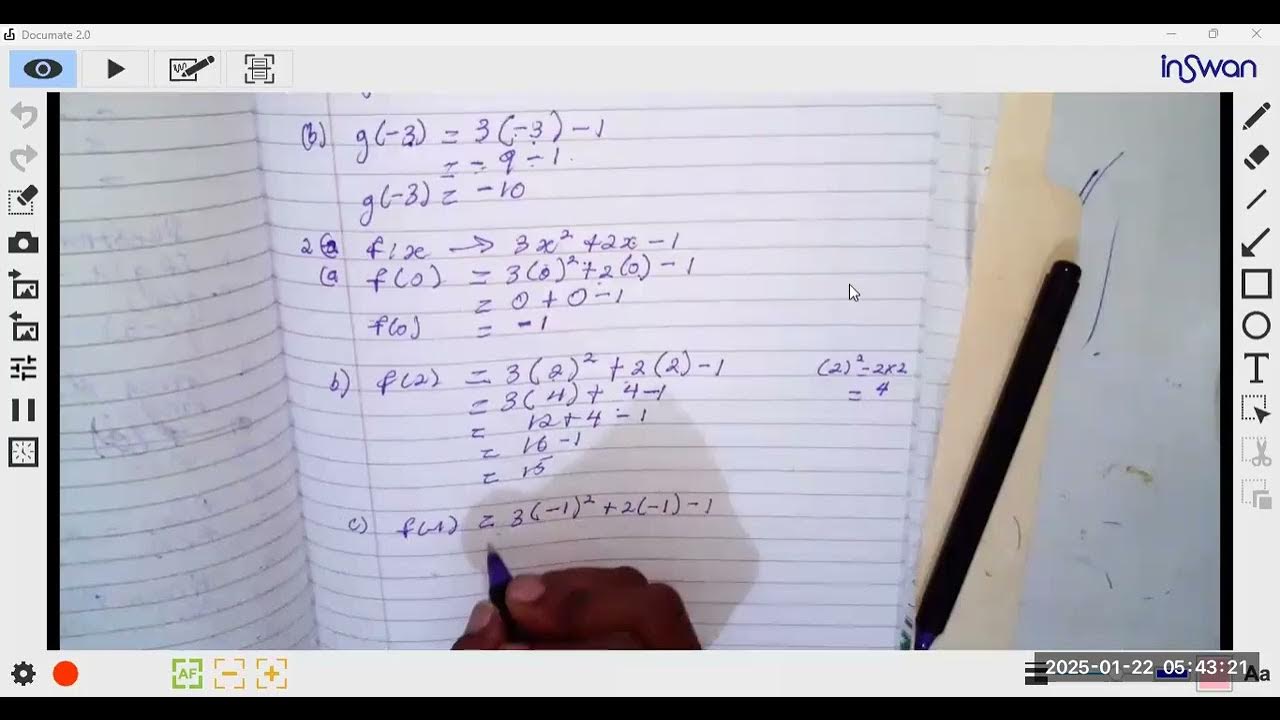 Documate 2.0
inSwan
(b) g(-3) = 3(-3) -1
= -9 -1.
g(-3) = -10
2 f:x → 3x² +2x -1
(a f(0) = 3(0)² +2(0) -1
= 0 + 0 -1
f(0) = -1
b) f(2) = 3(2)² + 2(2) -1
(2)² = 2x2
= 3(4) + 4-1
= 4
= 12+4 -1
= 16 -1
= 15
c) f(-1) = 3(-1)² +2(-1) -1
AF
2025-01-22 05:43:21
Aa
T